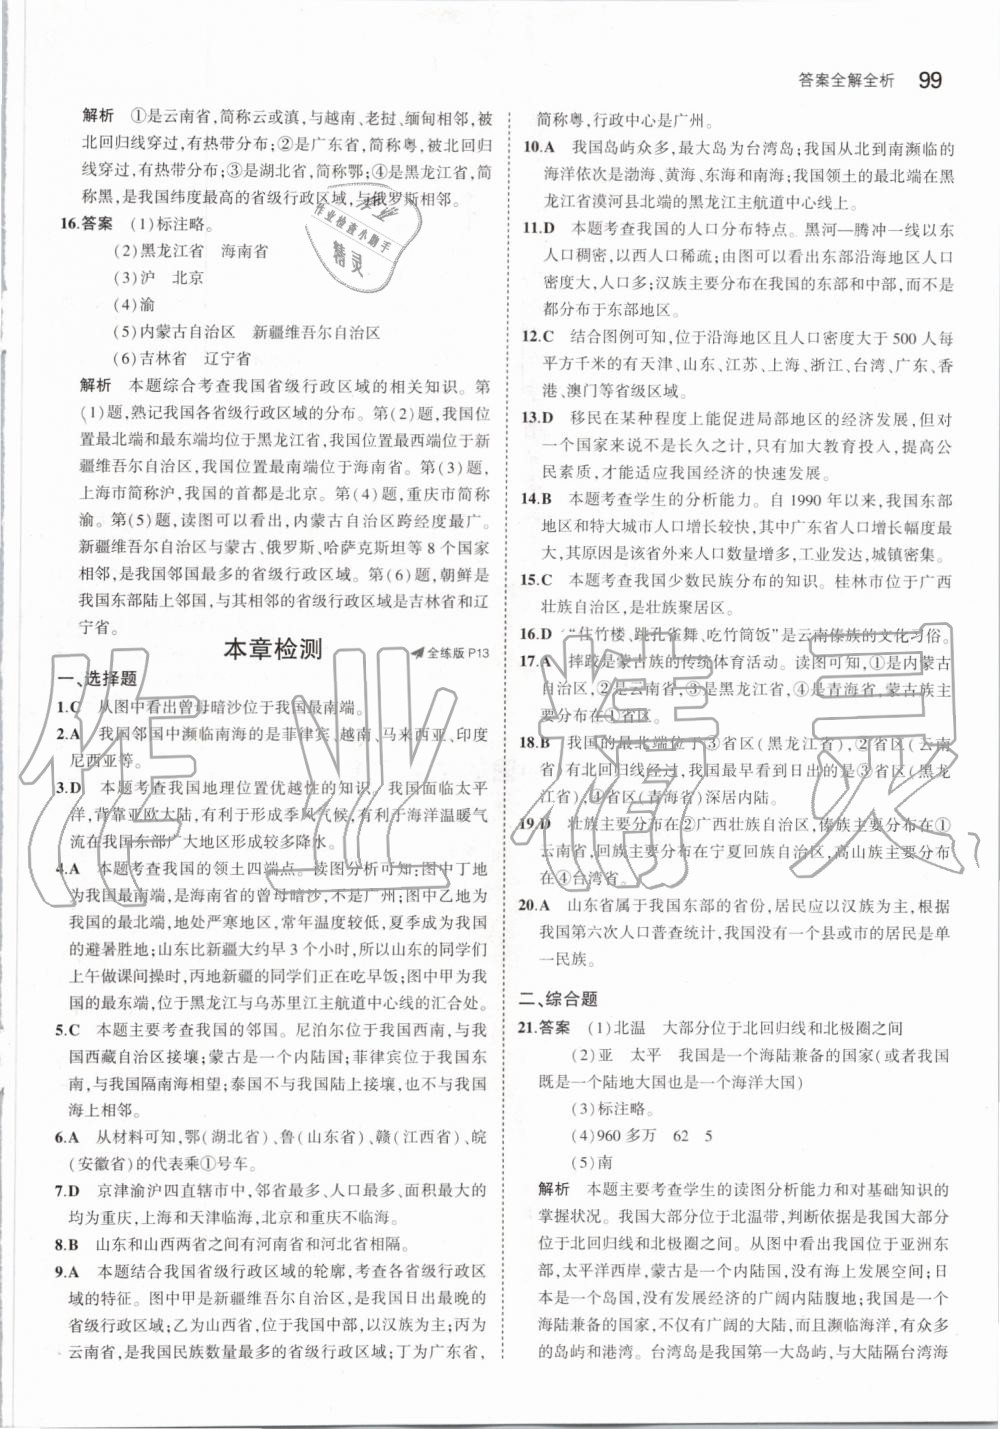 答案全解全析 99
解析 ①是云南省,简称云或滇,与越南、老挝、缅甸相邻,被
北回归线穿过,有热带分布;②是广东省,简称粤,被北回归
线穿过,有热带分布;③是湖北省,简称鄂;④是黑龙江省,简
称黑,是我国纬度最高的省级行政区域,与俄罗斯相邻。
16.答案 (1)标注略。
(2)黑龙江省 海南省
(3)沪 北京
(4)渝
(5)内蒙古自治区 新疆维吾尔自治区
(6)吉林省 辽宁省
解析 本题综合考查我国省级行政区域的相关知识。第
(1)题,熟记我国各省级行政区域的分布。第(2)题,我国位
置最北端和最东端均位于黑龙江省,我国位置最西端位于新
疆维吾尔自治区,我国位置最南端位于海南省。第(3)题,
上海市简称沪,我国的首都是北京。第(4)题,重庆市简称
渝。第(5)题,读图可以看出,内蒙古自治区跨经度最广。
新疆维吾尔自治区与蒙古、俄罗斯、哈萨克斯坦等8个国家
相邻,是我国邻国最多的省级行政区域。第(6)题,朝鲜是
我国东部陆上邻国,与其相邻的省级行政区域是吉林省和辽
宁省。
本章检测 全练版P13
一、选择题
1.C 从图中看出曾母暗沙位于我国最南端。
2.A 我国邻国中濒临南海的是菲律宾、越南、马来西亚、印度
尼西亚等。
3.D 本题考查我国地理位置优越性的知识。我国面临太平
洋,背靠亚欧大陆,有利于形成季风气候,有利于海洋温暖气
流在我国东部广大地区形成较多降水。
4.A 本题考查我国的领土四端点。读图分析可知:图中丁地
为我国最南端,是海南省的曾母暗沙,不是广州;图中乙地为
我国的最北端,地处严寒地区,常年温度较低,夏季成为我国
的避暑胜地;山东比新疆大约早3个小时,所以山东的同学们
上午做课间操时,丙地新疆的同学们正在吃早饭;图中甲为我
国的最东端,位于黑龙江与乌苏里江主航道中心线的汇合处。
5.C 本题主要考查我国的邻国。尼泊尔位于我国西南,与我
国西藏自治区接壤;蒙古是一个内陆国;菲律宾位于我国东
南,与我国隔南海相望;泰国不与我国陆上接壤,也不与我国
海上相邻。
6.A 从材料可知,鄂(湖北省)、鲁(山东省)、赣(江西省)、皖
(安徽省)的代表乘①号车。
7.D 京津渝沪四直辖市中,邻省最多、人口最多、面积最大的
均为重庆,上海和天津临海,北京和重庆不临海。
8.B 山东和山西两省之间有河南省和河北省相隔。
9.A 本题结合我国省级行政区域的轮廓,考查各省级行政区
域的特征。图中甲是新疆维吾尔自治区,是我国日出最晚的
省级行政区域;乙为山西省,位于我国中部,以汉族为主;丙为
云南省,是我国民族数量最多的省级行政区域;丁为广东省,
简称粤,行政中心是广州。
10.A 我国岛屿众多,最大岛为台湾岛;我国从北到南濒临的
海洋依次是渤海、黄海、东海和南海;我国领土的最北端在黑
龙江省漠河县北端的黑龙江主航道中心线上。
11.D 本题考查我国的人口分布特点。黑河—腾冲一线以东
人口稠密,以西人口稀疏;由图可以看出东部沿海地区人口
密度大,人口多;汉族主要分布在我国的东部和中部,而不是
都分布于东部地区。
12.C 结合图例可知,位于沿海地区且人口密度大于500人每
平方千米的有天津、山东、江苏、上海、浙江、台湾、广东、香
港、澳门等省级区域。
13.D 移民在某种程度上能促进局部地区的经济发展,但对
一个国家来说不是长久之计,只有加大教育投入,提高公
民素质,才能适应我国经济的快速发展。
14.B 本题考查学生的分析能力。自1990年以来,我国东部
地区和特大城市人口增长较快,其中广东省人口增长幅度最
大,其原因是该省外来人口数量增多,工业发达,城镇密集。
15.C 本题考查我国少数民族分布的知识。桂林市位于广西
壮族自治区,是壮族聚居区。
16.D “住竹楼、跳孔雀舞、吃竹筒饭”是云南傣族的文化习俗。
17.A 摔跤是蒙古族的传统体育活动。读图可知,①是内蒙古
自治区,②是云南省,③是黑龙江省,④是青海省,蒙古族主
要分布在①省区。
18.B 我国的最北端位于③省区(黑龙江省),②省区(云南
省)有北回归线经过,我国最早看到日出的是③省区(黑龙
江省),④省区(青海省)深居内陆。
19.D 壮族主要分布在②广西壮族自治区,傣族主要分布在①
云南省,回族主要分布在宁夏回族自治区,高山族主要分布
在④台湾省。
20.A 山东省属于我国东部的省份,居民应以汉族为主,根据
我国第六次人口普查统计,我国没有一个县或市的居民是单
一民族。
二、综合题
21.答案 (1)北温 大部分位于北回归线和北极圈之间
(2)亚 太平 我国是一个海陆兼备的国家(或者我国
既是一个陆地大国也是一个海洋大国)
(3)标注略。
(4)960多万 62 5
(5)南
解析 本题主要考查学生的读图分析能力和对基础知识的
掌握状况。我国大部分位于北温带,判断依据是我国大部分
位于北回归线和北极圈之间。从图中看出我国位于亚洲东
部,太平洋西岸,蒙古是一个内陆国,没有海上发展空间;日
本是一个岛国,没有发展经济的广阔内陆腹地;我国是一个
海陆兼备的国家,不仅有广阔的大陆,而且濒临海洋,有众多
的岛屿和港湾。台湾岛是我国第一大岛屿,与大陆隔台湾海
作业
作业检查小助手
精灵
作业精灵